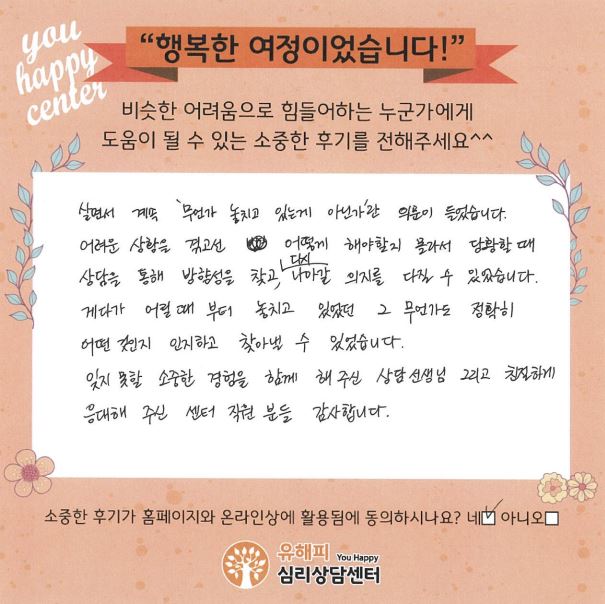 you
happy
center
“행복한 여정이었습니다!”
비슷한 어려움으로 힘들어하는 누군가에게
도움이 될 수 있는 소중한 후기를 전해주세요^^
살면서 계속 '무언가 놓치고 있는게 아닌가'란 의문이 들었습니다.
어려운 상황을 겪고선 어떻게 해야할지 몰라서 당황할 때
상담을 통해 방향성을 찾고, 다시 나아갈 의지를 다질 수 있었습니다.
게다가 어릴 때 부터 놓치고 있었던 그 무언가도 정확히
어떤 것인지 인지하고 찾아낼 수 있었습니다.
잊지 못할 소중한 경험을 함께 해 주신 상담 선생님 그리고 친절하게
응대해 주신 센터 직원 분들 감사합니다.
소중한 후기가 홈페이지와 온라인상에 활용됨에 동의하시나요? 네☑ 아니오☐
유해피 You Happy
심리상담센터